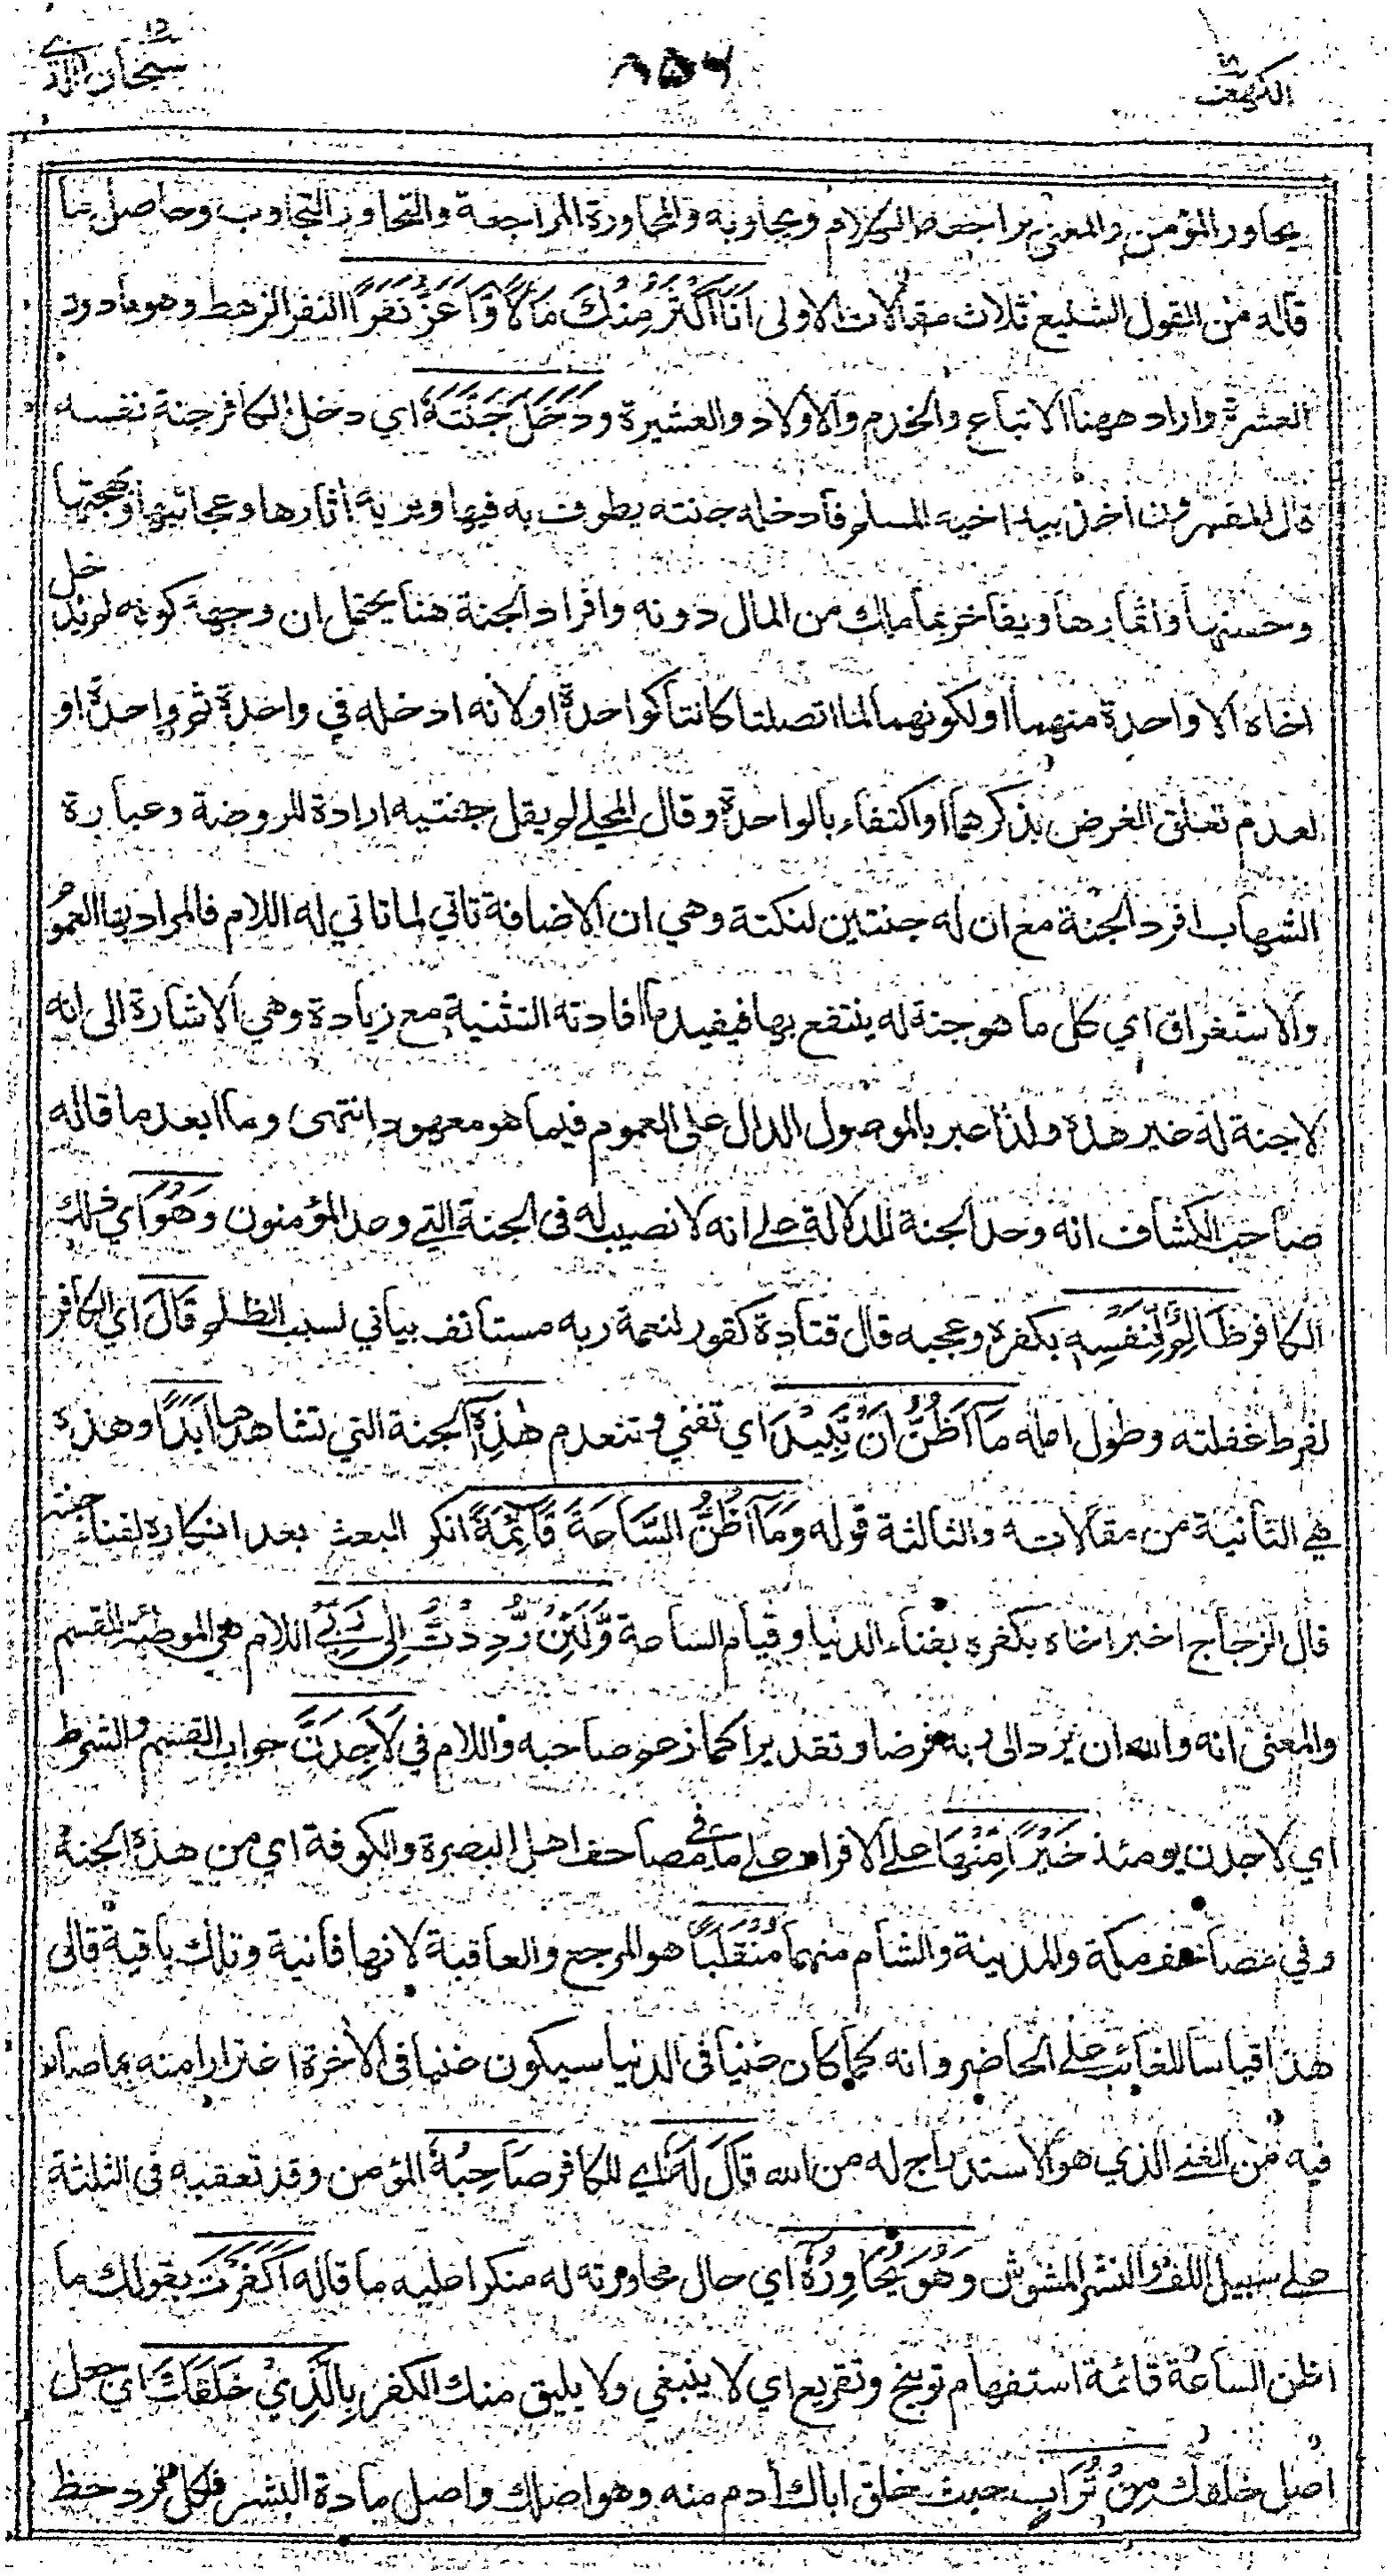 الكهف ١٨
٨٥٦
سبحان الذي ١٥
يحاور المؤمن والمعنى يراجعه الكلام ويجاوبه والمحاورة المراجعة والتحاور التجاوب وحاصل ما
قاله من القول الشنيع ثلاث مقالات الاولى اَنَا اَكْثَرُ مِنْكَ مَالًا وَّاَعَزُّ نَفَرًا النفر الرهط وهو مادون
العشرة واراد ههنا الاتباع والخدم والاولاد والعشيرة وَدَخَلَ جَنَّتَهٗ اي دخل الكافر جنة نفسه
قال المفسرون اخذ بيد اخيه المسلم فادخله جنته يطوف به فيها ويريه اثارها وعجائبها وبهجتها
وحسنها واثمارها ويفاخر بما ملك من المال دونه وافراد الجنة هنا يحتمل ان وجهه كونه لم يدخل
اخاه الا واحدة منهما او لكونهما لما اتصلتا كانتا كواحدة او لانه ادخله في واحدة ثم واحدة او
لعدم تعلق الغرض بذكرهما او اكتفاء بالواحدة وقال المحلي لم يقل جنتيه ارادة للروضة وعبارة
الشهاب افرد الجنة مع ان له جنتين لنكتة وهي ان الاضافة تاتي لما تاتي له اللام فالمراد بها العموم
والاستغراق اي كل ما هو جنة له ينتفع بها فيفيد ما افادته التثنية مع زيادة وهي الاشارة الى انه
لا جنة له غير هذه ولذا عبر بالموصول الدال على العموم فيما هو معهود انتهى وما ابعد ما قاله
صاحب الكشاف انه وحد الجنة للدلالة على انه لا نصيب له في الجنة التي وعد المؤمنون وَهُوَ اي ذلك
الكافر ظَالِمٌ لِّنَفْسِهٖ بكفره وعجبه قال قتادة كفور لنعمة ربه مستانف بياني لسبب الظلم قَالَ اي الكافر
لفرط غفلته وطول امله مَا اَظُنُّ اَنْ تَبِيْدَ اي تفنى وتنعدم هٰذِهٖ الجنة التي تشاهدها اَبَدًا وهذه
هي الثانية من مقالاته والثالثة قوله وَمَا اَظُنُّ السَّاعَةَ قَائِمَةً انكر البعث بعد انكاره لفناء جنته
قال الزجاج اخبر اخاه بكفره بفناء الدنيا وقيام الساعة وَّلَئِنْ رُّدِدْتُ اِلٰى رَبِّيْ اللام هي الموطئة للقسم
والمعنى انه والله ان يرد الى ربه فرضا وتقديرا كما زعم صاحبه واللام في لَاَجِدَنَّ جواب القسم والشرط
اي لاجدن يومئذ خَيْرًا مِّنْهَا على الافراد على ما في مصاحف اهل البصرة والكوفة اي من هذه الجنة
وفي مصاحف مكة والمدينة والشام منهما مُنْقَلَبًا هو المرجع والعاقبة لانها فانية وتلك باقية قالى
هذا قياسا للغائب على الحاضر وانه كما كان غنيا في الدنيا سيكون غنيا في الاخرة اغترارا منه بما صار
فيه من الغنى الذي هو الاستدراج له من الله قَالَ لَهٗ اي للكافر صَاحِبُهٗ المؤمن وقد تعقبه في الثلثة
على سبيل اللف والنشر المشوش وَهُوَ يُحَاوِرُهٗ اي حال محاورته له منكرا عليه ما قاله اَكَفَرْتَ بقولك ما
اظن الساعة قائمة استفهام توبيخ وتقريع اي لا ينبغي ولا يليق منك الكفر بِالَّذِيْ خَلَقَكَ اي جعل
اصل خلقك مِنْ تُرَابٍ حيث خلق اباك ادم منه وهو اصلك واصل مادة البشر فلكل فرد حظ